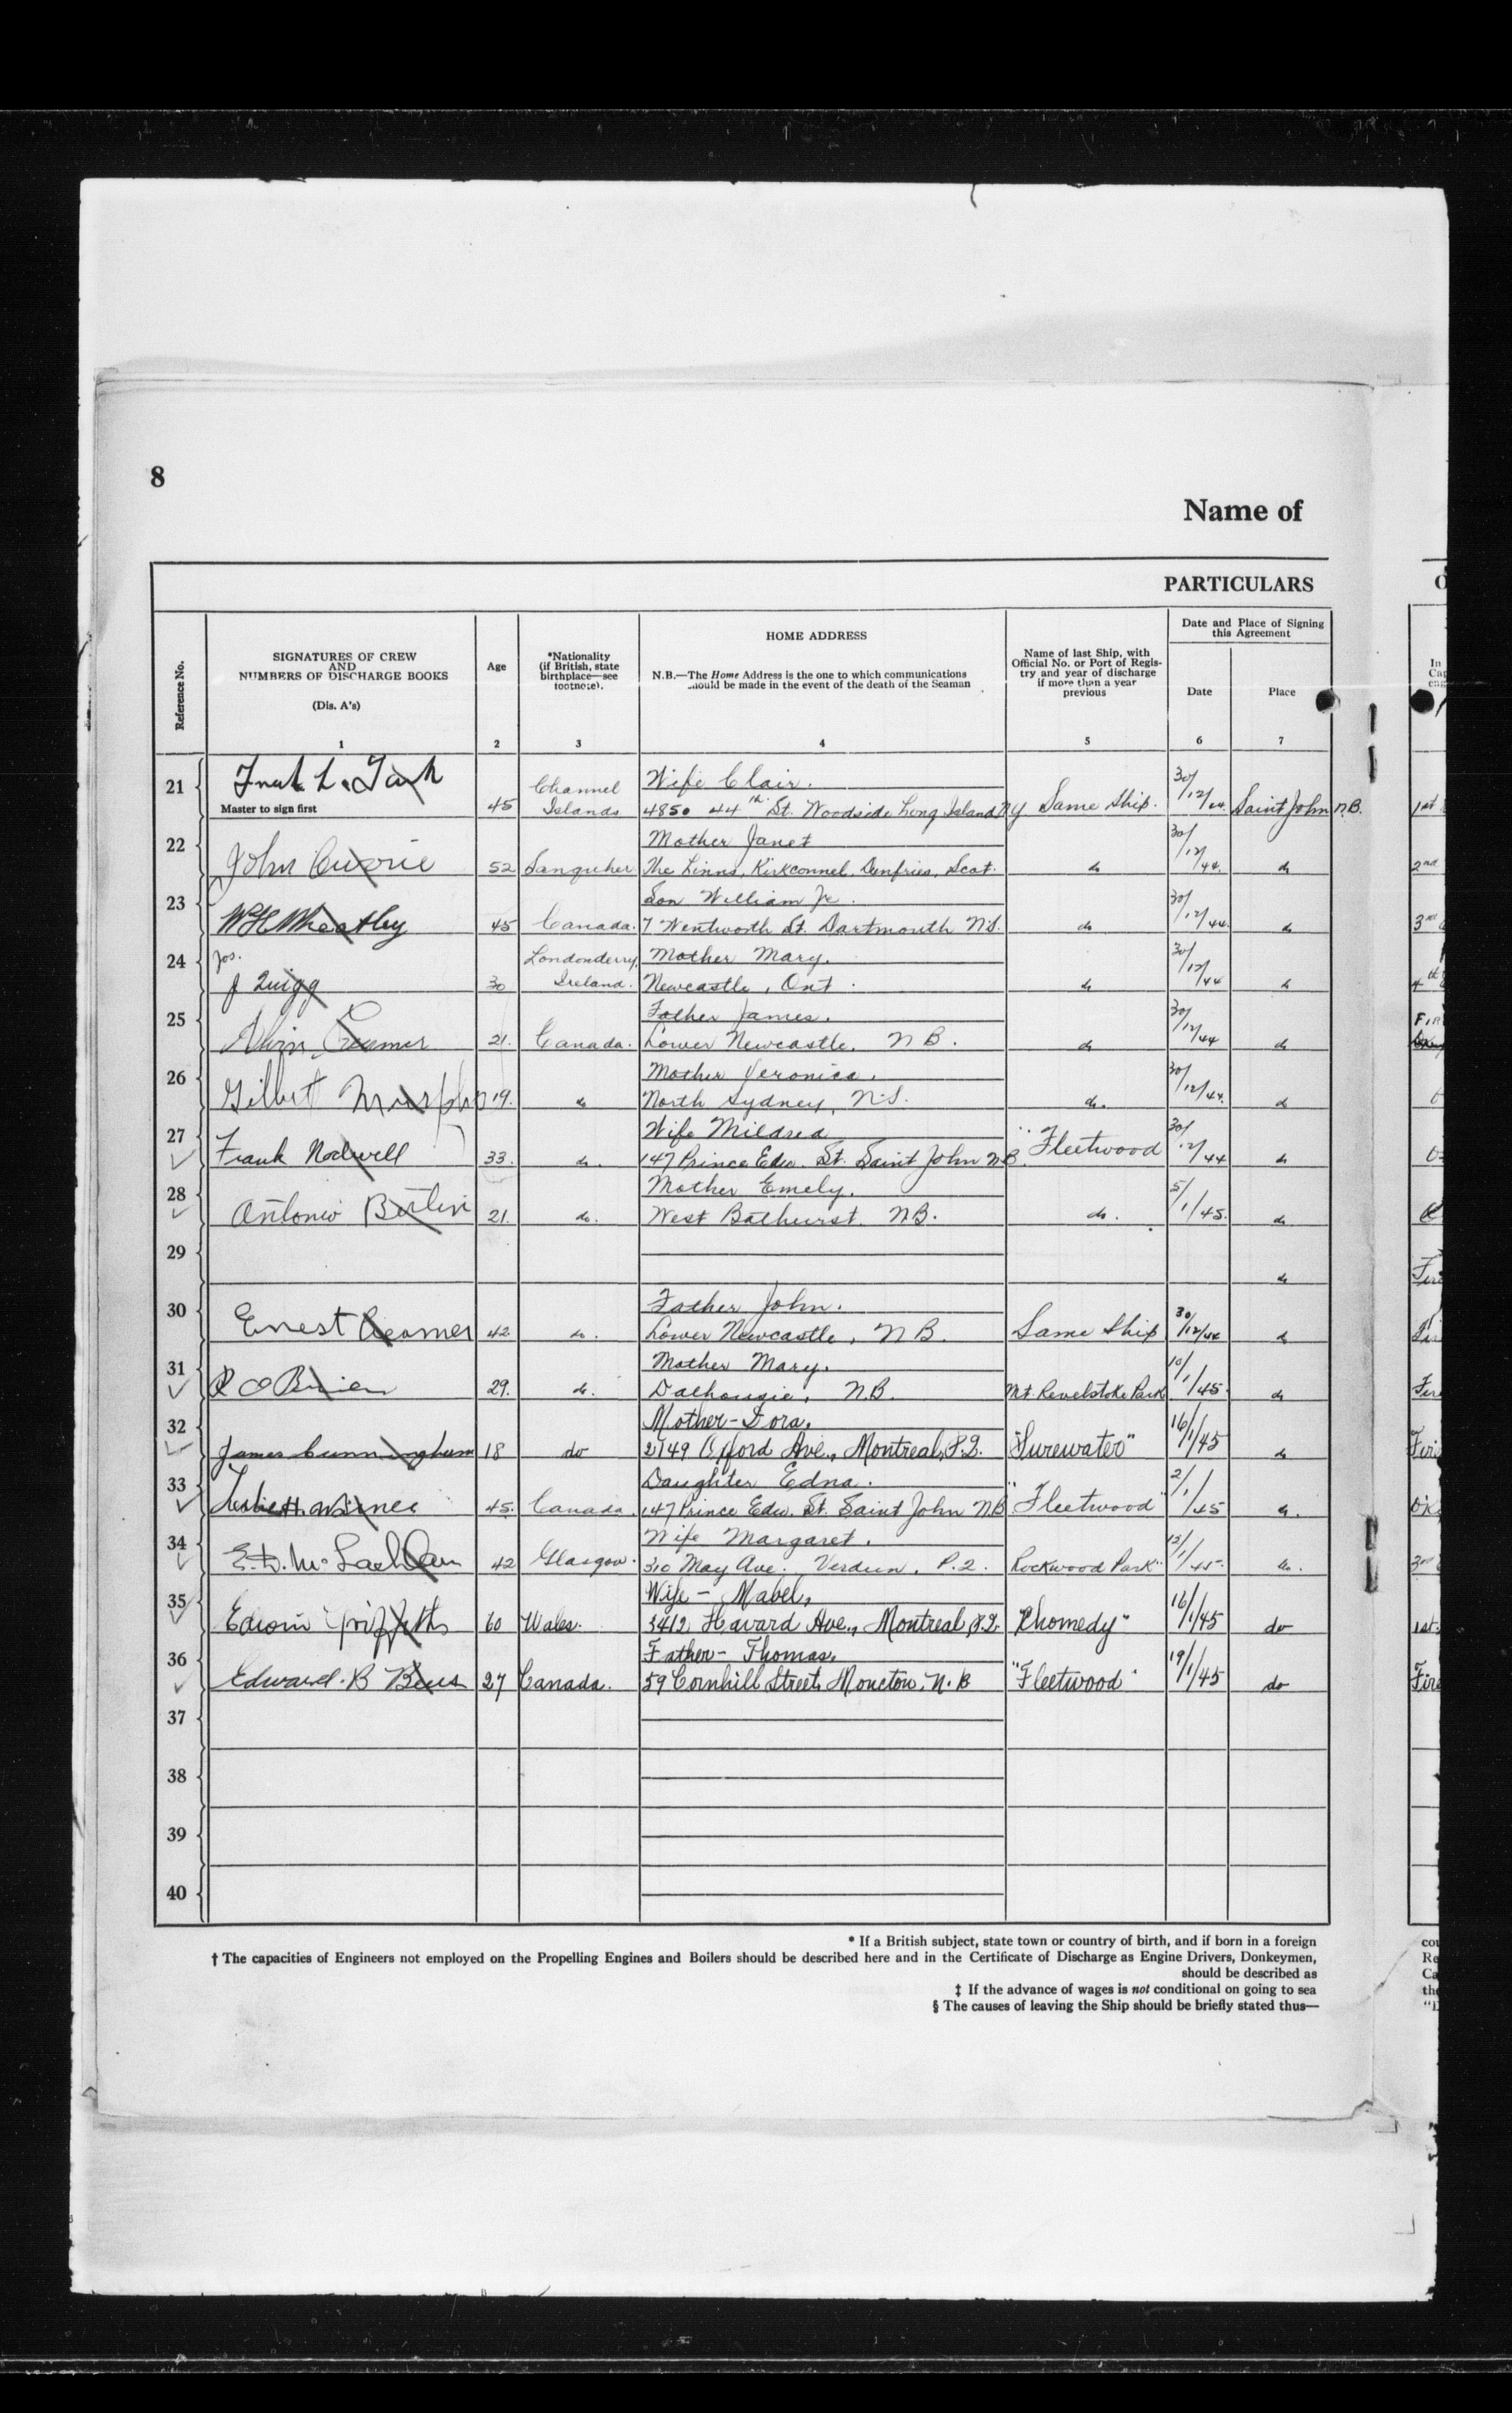 8
Name of
PARTICULARS
Reference No.
SIGNATURES OF CREW
AND
NUMBERS OF DISCHARGE BOOKS
(Dis. A's)
1
Age
2
*Nationality
(if British, state
birthplace—see
footnote).
3
HOME ADDRESS
N.B.—The Home Address is the one to which communications
should be made in the event of the death of the Seaman
4
Name of last Ship, with
Official No. or Port of Regis-
try and year of discharge
if more than a year
previous
5
Date and Place of Signing
this Agreement
Date
6
Place
7
21 Channel Wife Clair. 30/
Master to sign first 45 Islands 4850 44th St. Woodside Long Island NY Same Ship. 12/44 Saint John N.B. 1st
22 Mother Janet 30/
John Currie 52 Sanquher The Linns, Kirkconnel, Dumfries, Scot. do 12/44. do 2nd
23 Son William Jr. 30/
WH Wheatley 45 Canada. 7 Wentworth St. Dartmouth N.S. do 12/44 do 3rd
24 Jos. Londonderry, Mother Mary. 30/
J Quigg 30 Ireland. Newcastle, Ont. do 12/44 do 4th
25 Father James. 30/
Creamer 21. Canada. Lower Newcastle. N B. do 12/44 do
26 Mother Veronica. 30/
Gilbert Murphy 19. do North Sydney, N.S. do. 12/44. do
27 Wife Mildred 30/
Frank Nodwell 33. do. 147 Prince Edw. St. Saint John N.B. "Fleetwood 12/44 do
28 Mother Emely. 5/
Antonio Bertin 21. do. West Bathurst. N.B. do. 1/45. do
29
do
30 Father John. 30/
Ernest Creamer 42 do. Lower Newcastle, N B. Same Ship 12/44 do
31 Mother Mary. 10/
R O Brien 29. do. Dalhousie, N.B. Mt. Revelstoke Park 1/45 do
32 Mother-Dora. 16/
James Cunningham 18 do 2149 Oxford Ave., Montreal, P.Q. "Surewater" 1/45 do
33 Daughter Edna. 2/
Leslie H. 45. Canada. 147 Prince Edw. St. Saint John N.B "Fleetwood" 1/45 do.
34 Wife Margaret. 15/
E.D. McLachlan 42 Glasgow. 310 May Ave. Verdun. P.Q. Rockwood Park" 1/45. do.
35 Wife - Mabel, 16/
Edwin Griffiths 60 Wales. 3412 Havard Ave., Montreal, P.Q. "Rhomedy" 1/45 do 1st.
36 Father- Thomas. 19/
Edward. B Beers 27 Canada. 59 Cornhill Street, Moncton, N. B "Fleetwood" 1/45 do
37
38
39
40
* If a British subject, state town or country of birth, and if born in a foreign
† The capacities of Engineers not employed on the Propelling Engines and Boilers should be described here and in the Certificate of Discharge as Engine Drivers, Donkeymen,
should be described as
‡ If the advance of wages is not conditional on going to sea
§ The causes of leaving the Ship should be briefly stated thus—